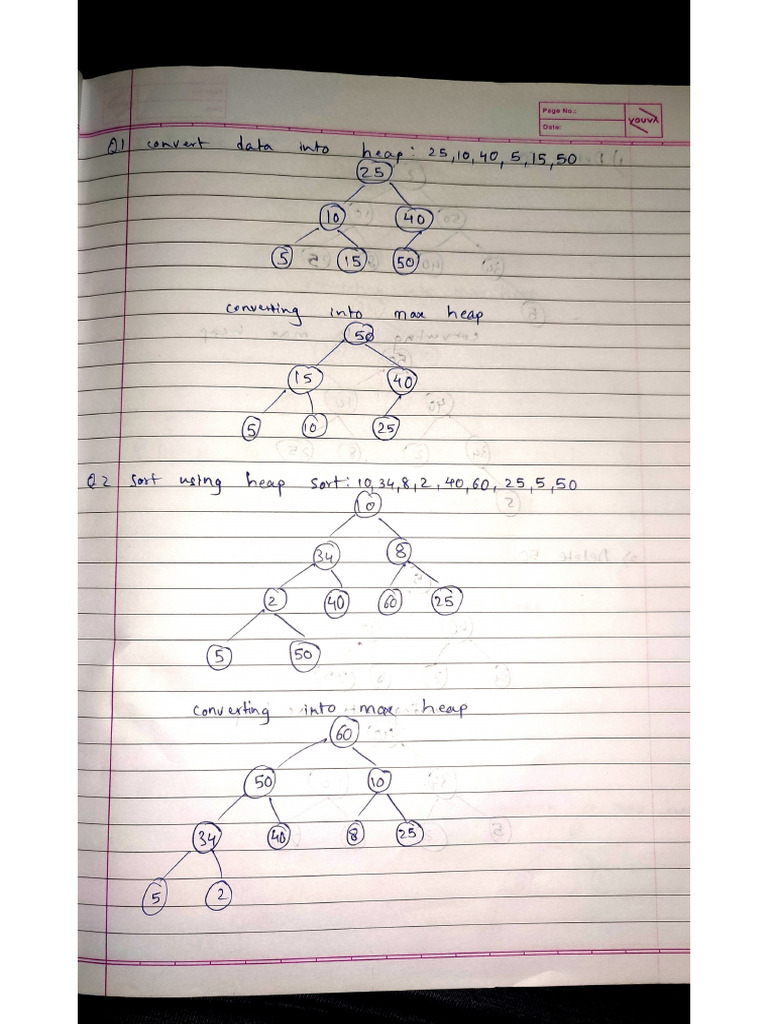 Page No.:
Date:
YOUVA
Q1 convert data into heap: 25,10,40,5,15,50
25
10 40
5 15 50
converting into max heap
50
15 40
5 10 25
Q2 sort using heap sort: 10,34,8,2,40,60,25,5,50
10
34 8
2 40 60 25
5 50
converting into max heap
60
50 10
34 40 8 25
5 2